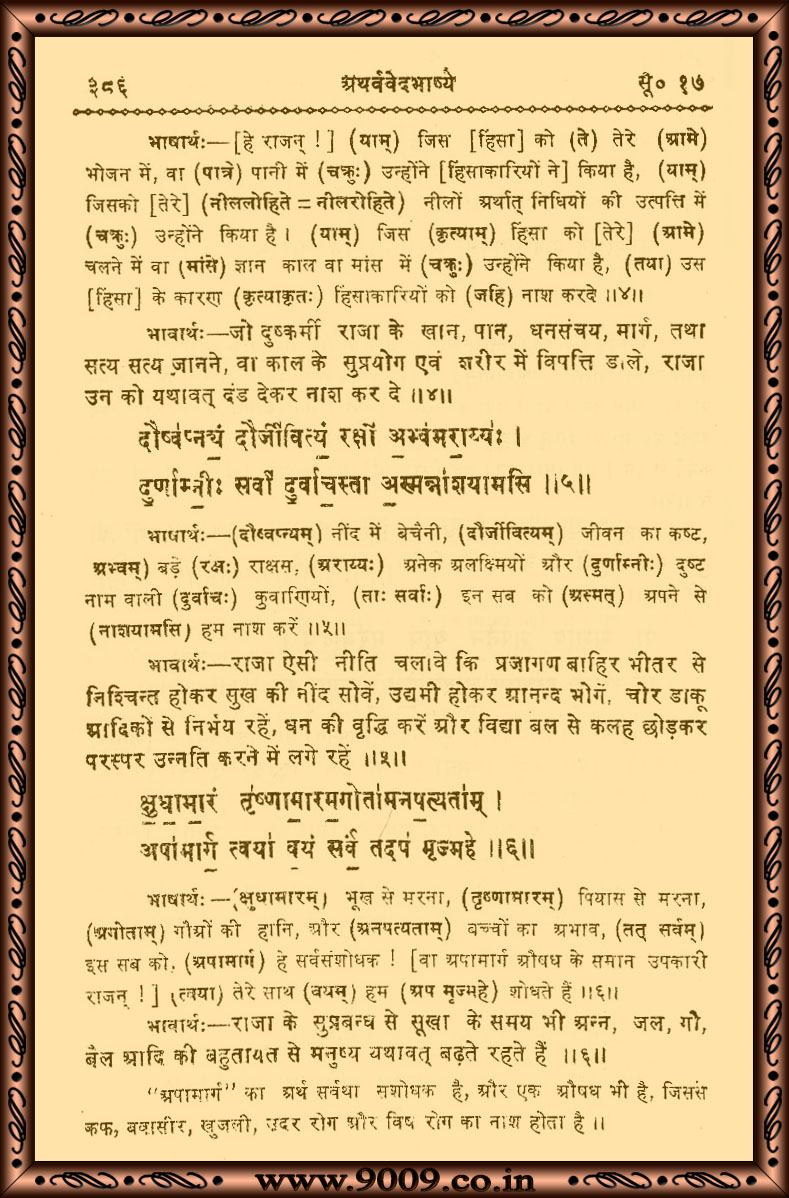 ३८६ अथर्ववेदभाष्ये सू० १७
भाषार्थः—[हे राजन् !] (याम्) जिस [हिंसा] को (ते) तेरे (आमे)
भोजन में, वा (पात्रे) पानी में (चक्रुः) उन्होंने [हिंसाकारियों ने] किया है, (याम्)
जिसको [तेरे] (नीललोहिते = नीलरोहिते) नीलों अर्थात् निधियों की उत्पत्ति में
(चक्रुः) उन्होंने किया है। (याम्) जिस (कृत्याम्) हिंसा को [तेरे] (आमे)
चलने में वा (मांसे) ज्ञान काल वा मांस में (चक्रुः) उन्होंने किया है, (तया) उस
[हिंसा] के कारण (कृत्याकृतः) हिंसाकारियों को (जहि) नाश करदे ॥४॥
भावार्थः—जो दुष्कर्मी राजा के खान, पान, धनसंचय, मार्ग, तथा
सत्य सत्य जानने, वा काल के सुप्रयोग एवं शरीर में विपत्ति डाले, राजा
उन को यथावत् दंड देकर नाश कर दे ॥४॥
दौष्व॑प्न्यं॒ दौर्जी॑वित्यं॒ रक्षो॑ अ॒भ्व॑मरा॒य्यः॑ ।
दु॒र्णाम्नीः॒ सर्वा॑ दु॒र्वाच॒स्ता अ॒स्मन्ना॑शयामसि ॥५॥
भाषार्थः—(दौष्वप्न्यम्) नींद में बेचैनी, (दौर्जीवित्यम्) जीवन का कष्ट,
अभ्वम्) बड़े (रक्षः) राक्षस, (अराय्यः) अनेक अलक्ष्मियों और (दुर्णाम्नीः) दुष्ट
नाम वाली (दुर्वाचः) कुवाणियों, (ताः सर्वाः) इन सब को (अस्मत्) अपने से
(नाशयामसि) हम नाश करें ॥५॥
भावार्थः—राजा ऐसी नीति चलावे कि प्रजागण बाहिर भीतर से
निश्चिन्त होकर सुख की नींद सोवें, उद्यमी होकर आनन्द भोगें, चोर डाकू
आदिकों से निर्भय रहें, धन की वृद्धि करें और विद्या बल से कलह छोड़कर
परस्पर उन्नति करने में लगे रहें ॥५॥
क्षु॒धा॒मा॒रं तृ॑ष्णामा॒रम॒गोता॑मनप॒त्यता॑म् ।
अपा॑मार्ग॒ त्वया॑ व॒यं सर्वं॒ तदप॑ मृज्महे ॥६॥
भाषार्थः—(क्षुधामारम्) भूख से मरना, (तृष्णामारम्) पियास से मरना,
(अगोताम्) गौओं की हानि, और (अनपत्यताम्) बच्चों का अभाव, (तत् सर्वम्)
इस सब को, (अपामार्ग) हे सर्वसंशोधक ! [वा अपामार्ग औषध के समान उपकारी
राजन् !] (त्वया) तेरे साथ (वयम्) हम (अप मृज्महे) शोधते हैं ॥६॥
भावार्थः—राजा के सुप्रबन्ध से सूखा के समय भी अन्न, जल, गौ,
बैल आदि की बहुतायत से मनुष्य यथावत् बढ़ते रहते हैं ॥६॥
“अपामार्ग” का अर्थ सर्वथा सशोधक है, और एक औषध भी है, जिससे
कफ, बवासीर, खुजली, उदर रोग और विष रोग का नाश होता है ॥
www.9009.co.in